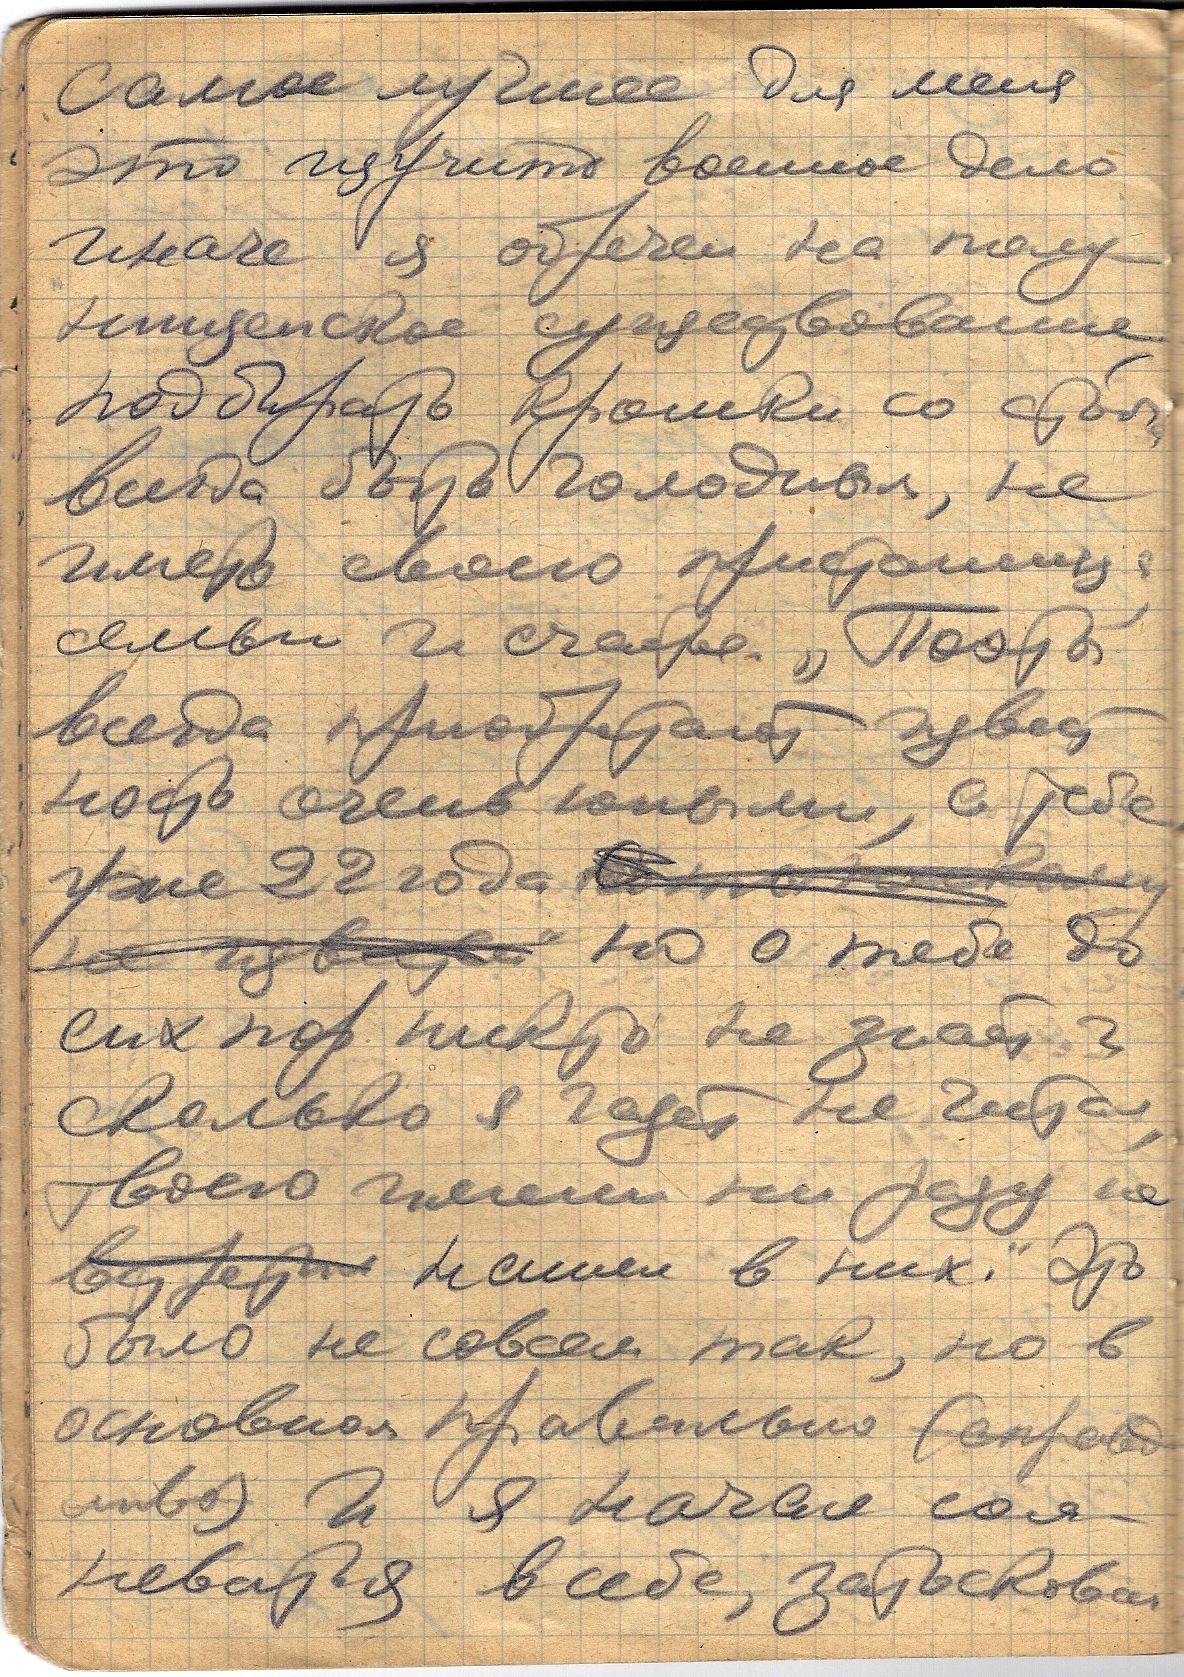 самое лучшее для меня
это изучить военное дело
иначе я обречен на полу
нищенское существование,
подбирать крошки со стола,
всегда быть голодным, не
иметь своего пристанища,
семьи и счастье. „Поэты
всегда приобретают извест
ность очень юными, а тебе
уже 22 года
но о тебе до
сих пор никто не знает и
сколько я газет не читал,
твоего имени ни разу не
встретил нашел в них." Это
было не совсем так, но в
основном правильно (справед
ливо) И я начал сом-
неваться в себе, затосковал